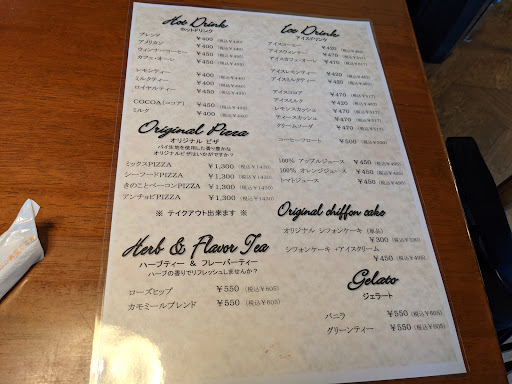 Hot Drink
ホットドリンク
ブレンド ¥400 (税込¥440)
アメリカン ¥400 (税込¥440)
ウィンナーコーヒー ¥450 (税込¥495)
カフェ・オーレ ¥450 (税込¥495)
レモンティー ¥400 (税込¥440)
ミルクティー ¥400 (税込¥440)
ロイヤルティー ¥450 (税込¥495)
COCOA(ココア) ¥450 (税込¥495)
ミルク ¥400 (税込¥440)
Original Pizza
オリジナル ピザ
パイ生地を使用した香り豊かな
オリジナルピザはいかがですか?
ミックスPIZZA ¥1,300 (税込¥1430)
シーフードPIZZA ¥1,300 (税込¥1430)
きのことベーコンPIZZA ¥1,300 (税込¥1430)
アンチョビPIZZA ¥1,300 (税込¥1430)
※ テイクアウト出来ます ※
Herb & Flavor Tea
ハーブティー & フレーバーティー
ハーブの香りでリフレッシュしませんか?
ローズヒップ ¥550 (税込¥605)
カモミールブレンド ¥550 (税込¥605)
Ice Drink
アイスドリンク
アイスコーヒー ¥420
アイスウィンナー ¥470 (税込¥517)
アイスカフェ・オーレ ¥470 (税込¥517)
アイスレモンティー ¥420
アイスミルクティー ¥420
アイスココア ¥470 (税込¥517)
アイスミルク ¥420
レモンスカッシュ ¥470 (税込¥517)
ティースカッシュ ¥470 (税込¥517)
クリームソーダ ¥470 (税込¥517)
コーヒーフロート ¥500 (税込¥550)
100% アップルジュース ¥450 (税込¥495)
100% オレンジジュース ¥450 (税込¥495)
トマトジュース ¥450 (税込¥495)
Original chiffon cake
オリジナル シフォンケーキ (単品)
¥300 (税込¥330)
シフォンケーキ +アイスクリーム
¥450 (税込¥495)
Gelato
ジェラート
バニラ ¥550 (税込¥605)
グリーンティー ¥550 (税込¥605)